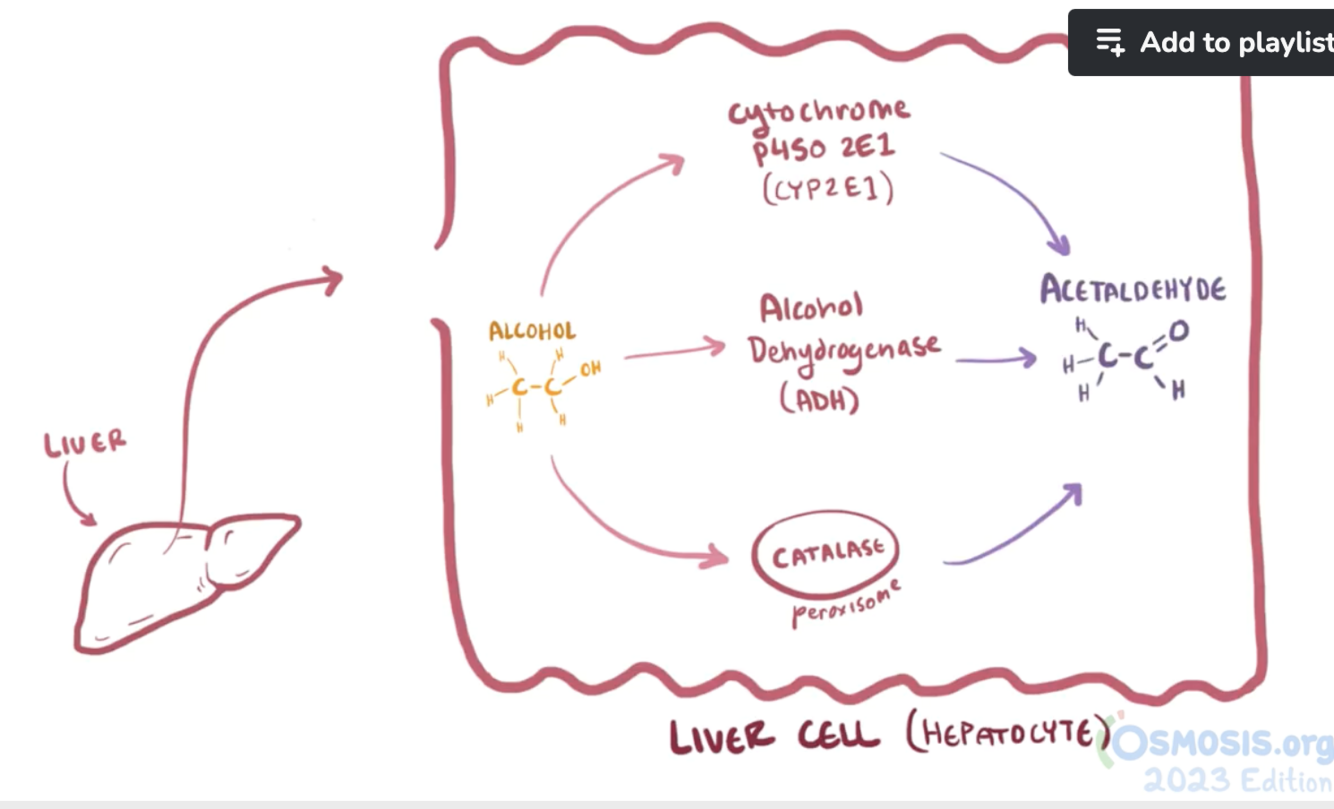 Add to playlist
Cytochrome
P450 2E1
(CYP2E1)
ACETALDEHYDE
H
O
H C C
H H
Alcohol
Dehydrogenase
(ADH)
ALCOHOL
H H
OH
H C C
H H
LIVER
CATALASE
peroxisome
LIVER CELL (HEPATOCYTE)
OSMOSIS.org
2023 Edition